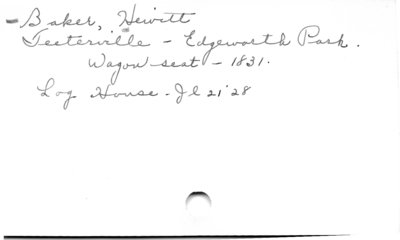 - Baker, Hewitt
Teeterville - Edgeworth Park.
Wagon seat - 1831.
Log House - Jl 21 '28